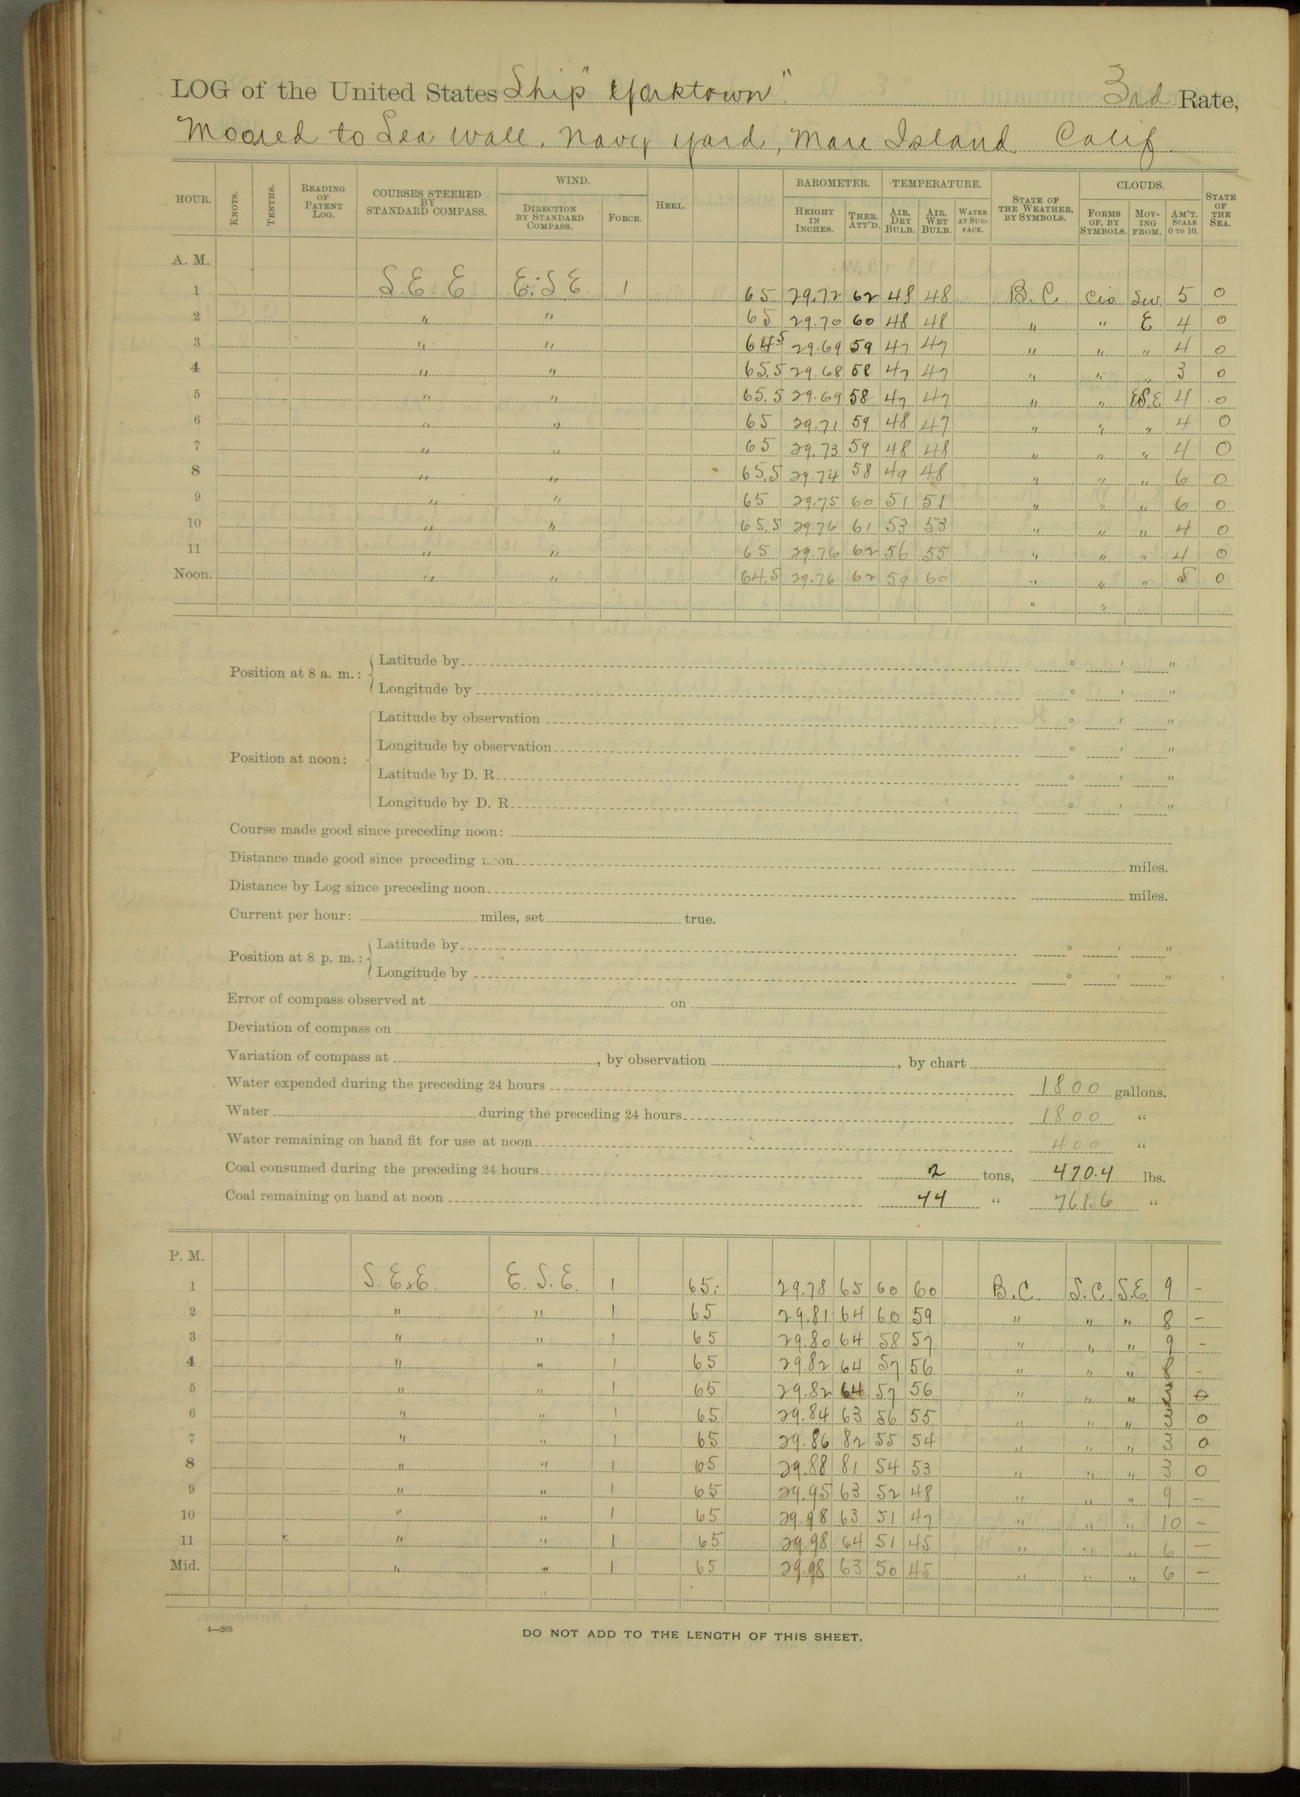 LOG of the United States Ship "Yorktown". 3rd Rate,
Moored to Sea Wall. Navy Yard, Mare Island Calif.
HOUR. KNOTS. TENTHS. READING OF PATENT LOG. COURSES STEERED BY STANDARD COMPASS. WIND. DIRECTION BY STANDARD COMPASS. FORCE. HEEL. BAROMETER. HEIGHT IN INCHES. THER. ATT'D. TEMPERATURE. AIR, DRY BULB. AIR, WET BULB. WATER AT SURFACE. STATE OF THE WEATHER, BY SYMBOLS. CLOUDS. FORMS OF, BY SYMBOLS. MOVING FROM. AM'T. SCALE 0 TO 10. STATE OF THE SEA.
A. M.
1 S. E. E E. S E 1 65 29.72 62 48 48 B. C. 5 0
2 " " 65 29.70 60 48 48 " " E 4 0
3 " " 64.5 29.69 59 47 47 " " " 4 0
4 " " 65.5 29.68 58 47 47 " " " 3 0
5 " " 65.5 29.69 58 47 47 " " E.S.E 4 0
6 " " 65 29.71 59 48 47 " " " 4 0
7 " " 65 29.73 59 48 48 " " " 4 0
8 " " 65.5 29.74 58 49 48 " " " 6 0
9 " " 65 29.75 60 51 51 " " " 6 0
10 " " 65.5 29.76 61 53 53 " " " 4 0
11 " " 65 29.76 62 56 55 " " " 4 0
Noon. " " 64.5 29.76 62 59 60 " " " 5 0
" "
Position at 8 a. m.: Latitude by ° ′ ″
Longitude by ° ′ ″
Position at noon: Latitude by observation ° ′ ″
Longitude by observation ° ′ ″
Latitude by D. R. ° ′ ″
Longitude by D. R. ° ′ ″
Course made good since preceding noon:
Distance made good since preceding noon miles.
Distance by Log since preceding noon miles.
Current per hour: miles, set true.
Position at 8 p. m.: Latitude by ° ′ ″
Longitude by ° ′ ″
Error of compass observed at on
Deviation of compass on
Variation of compass at , by observation , by chart
Water expended during the preceding 24 hours 1800 gallons.
Water during the preceding 24 hours 1800 "
Water remaining on hand fit for use at noon 400 "
Coal consumed during the preceding 24 hours 2 tons, 470.4 lbs.
Coal remaining on hand at noon 44 " 761.6 "
P. M.
1 S. E x E. E. S. E. 1 65 29.78 65 60 60 B. C. S. C. S. E. 9 -
2 " " 1 65 29.81 64 60 59 " " " 8 -
3 " " 1 65 29.80 64 58 57 " " " 9 -
4 " " 1 65 29.82 64 57 56 " " " 8 -
5 " " 1 65 29.82 64 57 56 " " " 3 0
6 " " 1 65 29.84 63 56 55 " " " 3 0
7 " " 1 65 29.86 82 55 54 " " " 3 0
8 " " 1 65 29.88 81 54 53 " " " 3 0
9 " " 1 65 29.95 63 52 48 " " " 9 -
10 " " 1 65 29.98 63 51 47 " " " 10 -
11 " " 1 65 29.98 64 51 45 " " " 6 -
Mid. " " 1 65 29.98 63 50 45 " " " 6 -
4—265
DO NOT ADD TO THE LENGTH OF THIS SHEET.